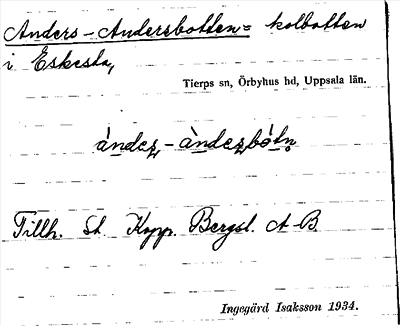 Anders-Andersbotten= kolbotten
i Eskesta,
Tierps sn, Örbyhus hd, Uppsala län.
àndeʂ-àndeʂbótn̥
Tillh. St. Kopp. Bergsl. A-B
Ingegärd Isaksson 1934.